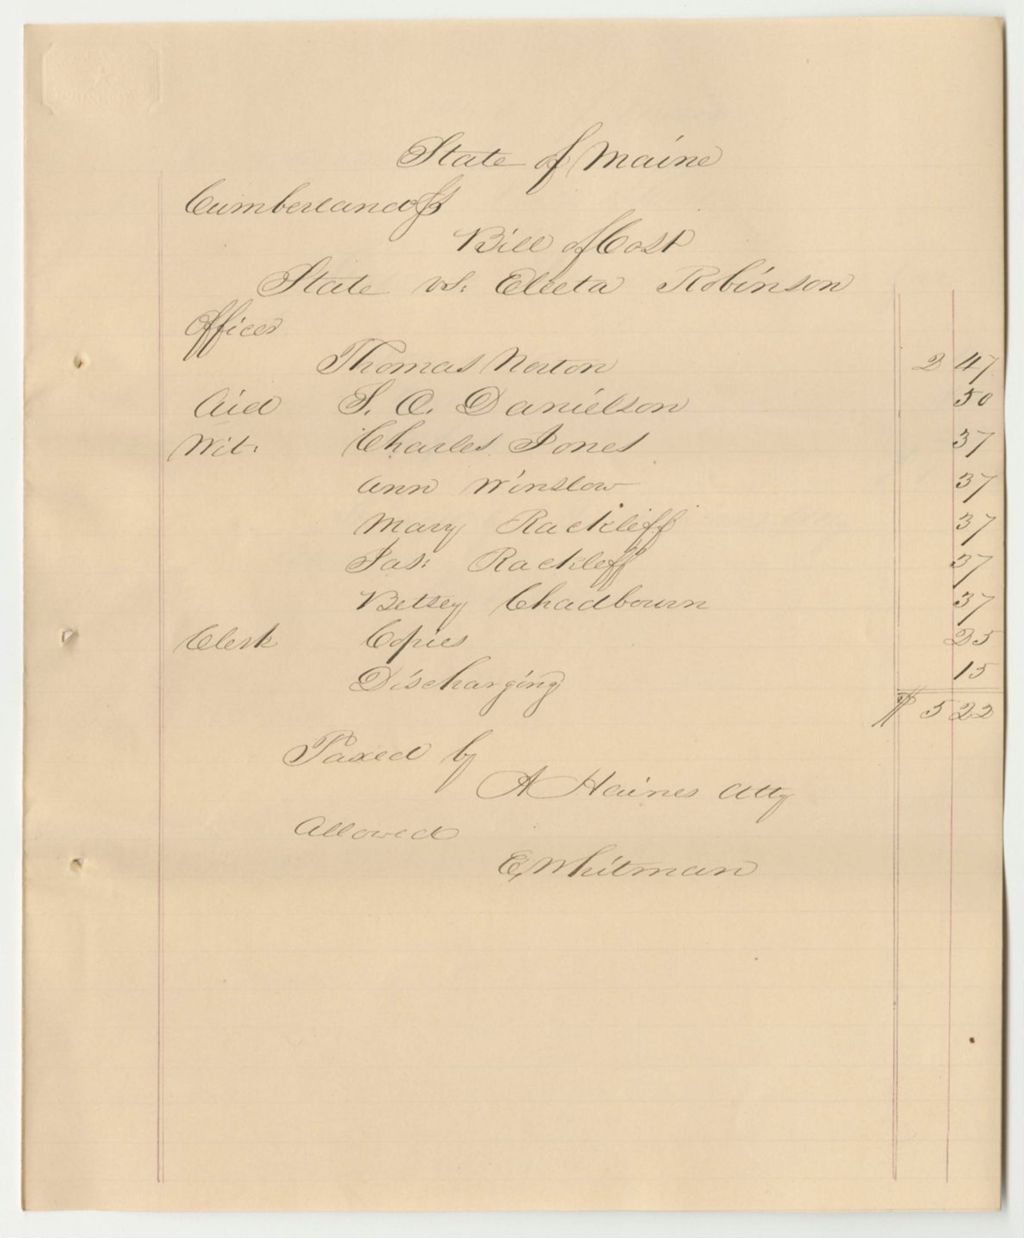 State of Maine
Cumberland ss
Bill of Cost
State vs: Electa Robinson
Officer
Thomas Norton 2 47
Aid S. C. Danielson 50
Wit: Charles Jones 37
Ann Winslow 37
Mary Rackliff 37
Jas: Rackleff 37
Betsey Chadbourn 37
Clerk Copies 25
Discharging 15
$ 5 22
Taxed by
A Haines Atty
Allowed
E, Whitman